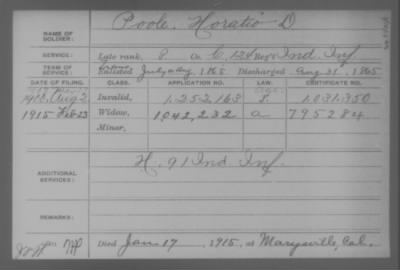 NAME OF SOLDIER: Poole, Horatio D
SERVICE: Late rank, P. Co. C, 124 Reg't Ind. Inf.
TERM OF SERVICE: Enlisted July 1865 Discharged Aug. 31, 1865
DATE OF FILING. CLASS. APPLICATION NO. LAW. CERTIFICATE NO.
Aug 2 Invalid, 1,252,163 1,031,350
1915 Feb 23 Widow, 1042,232 a 795284
Minor,
H. 91 Ind Inf.
ADDITIONAL SERVICES:
REMARKS:
Died Jan 17, 1915, at Marysville, Cal.